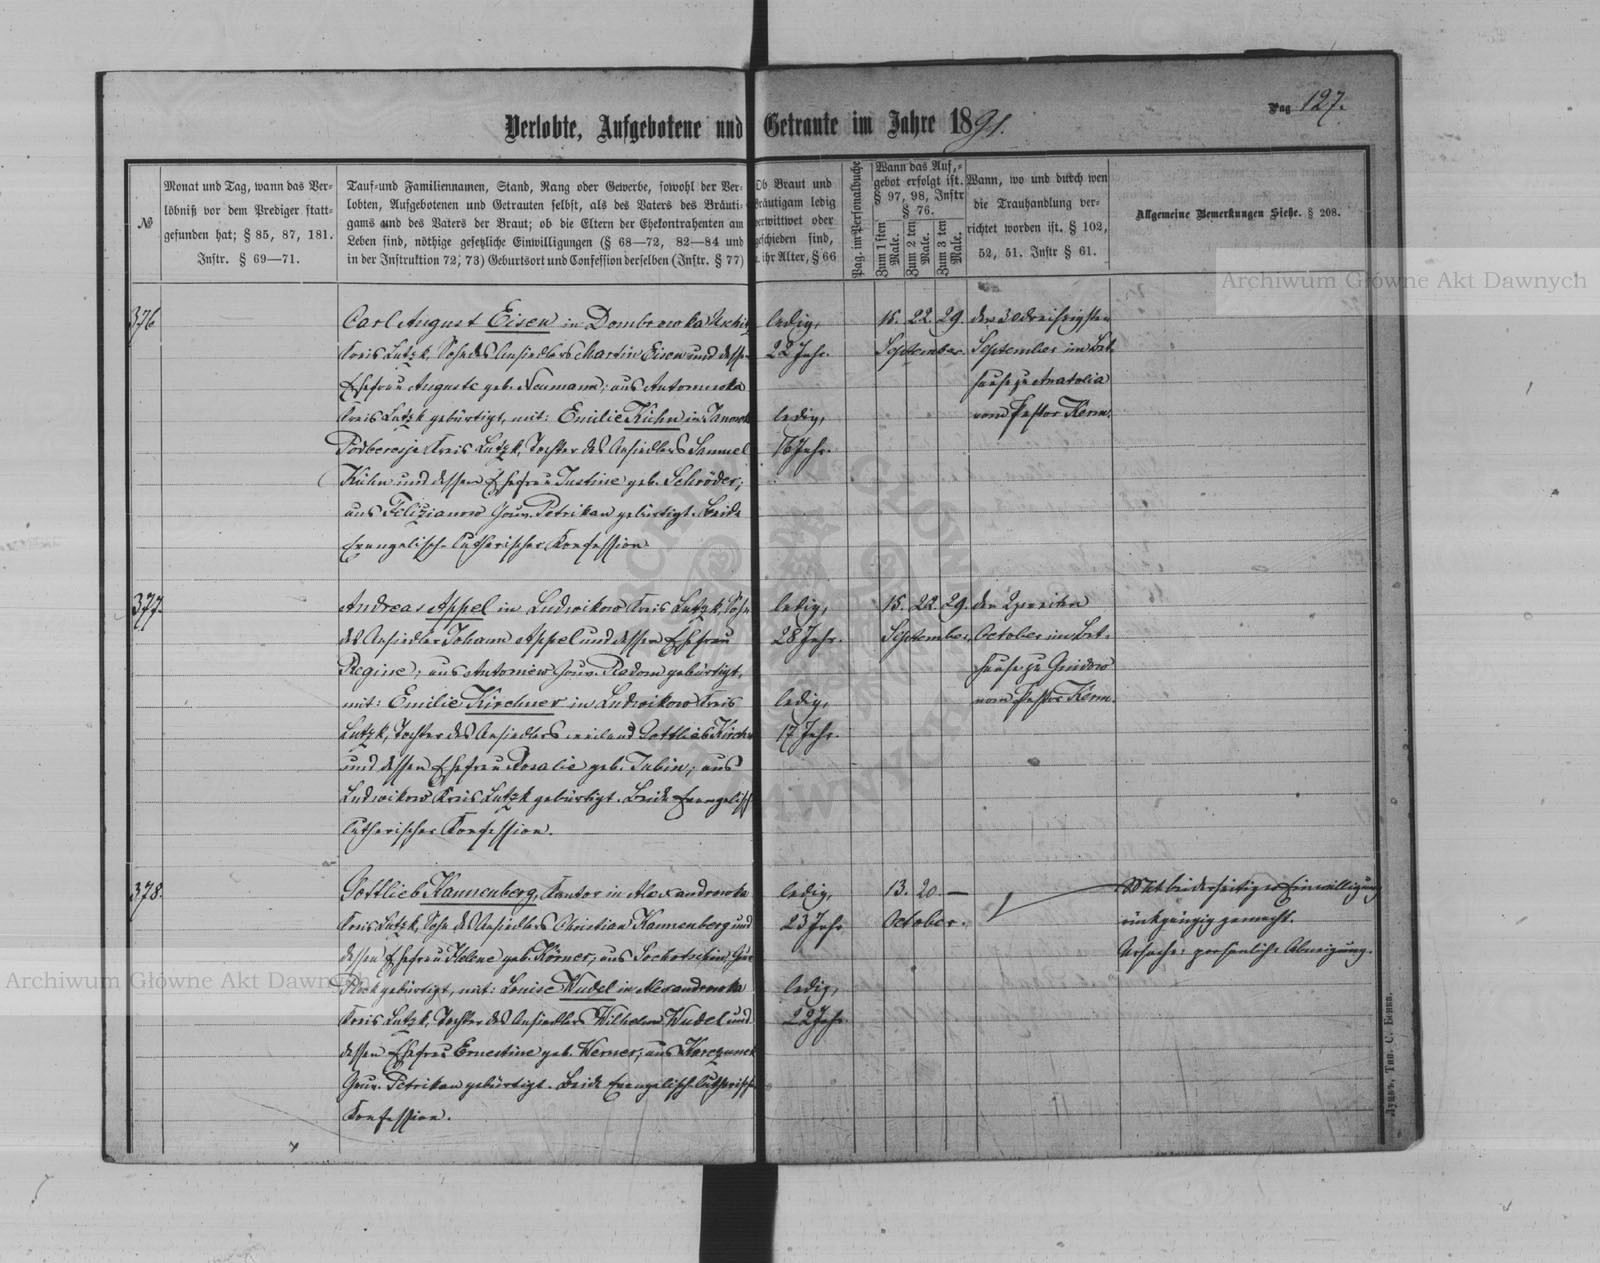 Pag 127.
Verlobte, Aufgebotene und Getraute im Jahre 1891.
№
Monat und Tag, wann das Ver-
löbniß vor dem Prediger statt-
gefunden hat; § 85, 87, 181.
Instr. § 69—71.
Tauf-und Familiennamen, Stand, Rang oder Gewerbe, sowohl der Ver-
lobten, Aufgebotenen und Getrauten selbst, als des Vaters des Bräuti-
gams und des Vaters der Braut; ob die Eltern der Ehekontrahenten am
Leben sind, nöthige gesetzliche Einwilligungen (§ 68—72, 82—84 und
in der Instruktion 72, 73) Geburtsort und Confession derselben (Instr. § 77)
Ob Braut und
Bräutigam ledig
verwittwet oder
geschieden sind,
u. ihr Alter, § 66
Pag. im Personalbuche
Wann das Auf-
gebot erfolgt ist.
§ 97, 98, Instr
§ 76.
Zum 1 sten Male.
Zum 2 ten Male.
Zum 3 ten Male.
Wann, wo und durch wen
die Trauhandlung ver-
richtet worden ist. § 102,
52, 51. Instr § 61.
Allgemeine Bemerkungen Siehe. § 208.
376
Carl August Eisen in Dombrowka
Kreis Lutzk, Sohn des Ansiedlers Martin Eisen und dessen
Ehefrau Auguste geb. Neumann; aus Antonowka
Kreis Lutzk gebürtigt, mit: Emilie Kühn in Janowka
Podberesje Kreis Lutzk, Tochter des Ansiedlers Samuel
Kühn und dessen Ehefrau Justine geb. Schröder;
aus Felizianow Gouv. Petrikau gebürtigt. Beide
Evangelisch-Lutherischer Konfession.
ledig,
22 Jahr.
ledig,
16 Jahr.
15. 22. 29.
September.
den 30 dreißigsten
September im Bet-
hause zu Anatolia
vom Pastor Kerm.
377.
Andreas Appel in Ludwikow Kreis Lutzk, Sohn
des Ansiedler Johann Appel und dessen Ehefrau
Regine; aus Antoniew Gouv. Radom gebürtigt,
mit: Emilie Kirchner in Ludwikow Kreis
Lutzk, Tochter des Ansiedlers weiland Gottlieb Kirchner
und dessen Ehefrau Rosalie geb. Tubin; aus
Ludwikow Kreis Lutzk gebürtigt. Beide Evangelisch
Lutherischer Konfession.
ledig,
28 Jahr.
ledig,
17 Jahr.
15. 22. 29.
September.
den Zweiten
October im Bet-
hause zu Gnidow
vom Pastor Kerm.
378.
Gottlieb Kannenberg, Kantor in Alexandrowka
Kreis Lutzk, Sohn des Ansiedlers Christian Kannenberg und
dessen Ehefrau Helene geb. Körner; aus Sochotschin Gouv
Plock gebürtigt, mit: Louise Wudel in Alexandrowka
Kreis Lutzk, Tochter des Ansiedlers Wilhelm Wudel und
dessen Ehefrau Ernestine geb. Werner; aus
Gouv. Petrikau gebürtigt. Beide Evangelisch Lutherisch
Konfession.
ledig,
23 Jahr
ledig,
22 Jahr.
13. 20. —
October.
Mit beiderseitiger Einwilligung
rückgängig gemacht.
Ursache: persönliche Abneigung.
Луцкъ, Тип. С. Бенка.
Archiwum Główne Akt Dawnych
Archiwum Główne Akt Dawnych